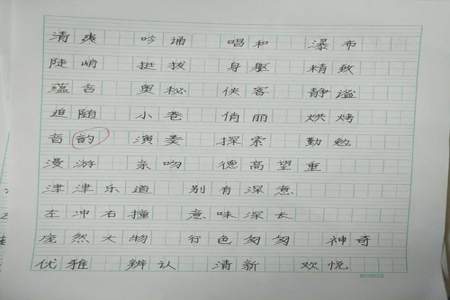 清爽 吟诵 唱和 瀑布
陡峭 挺拔 身躯 精致
蕴含 奥秘 侠客 静谧
追随 小巷 俏丽 烘烤
音韵 演奏 探索 勤勉
漫游 亲吻 德高望重
津津乐道 别有深意
左冲右撞 意味深长
庞然大物 行色匆匆 神奇
优雅 辨认 清新 欢悦